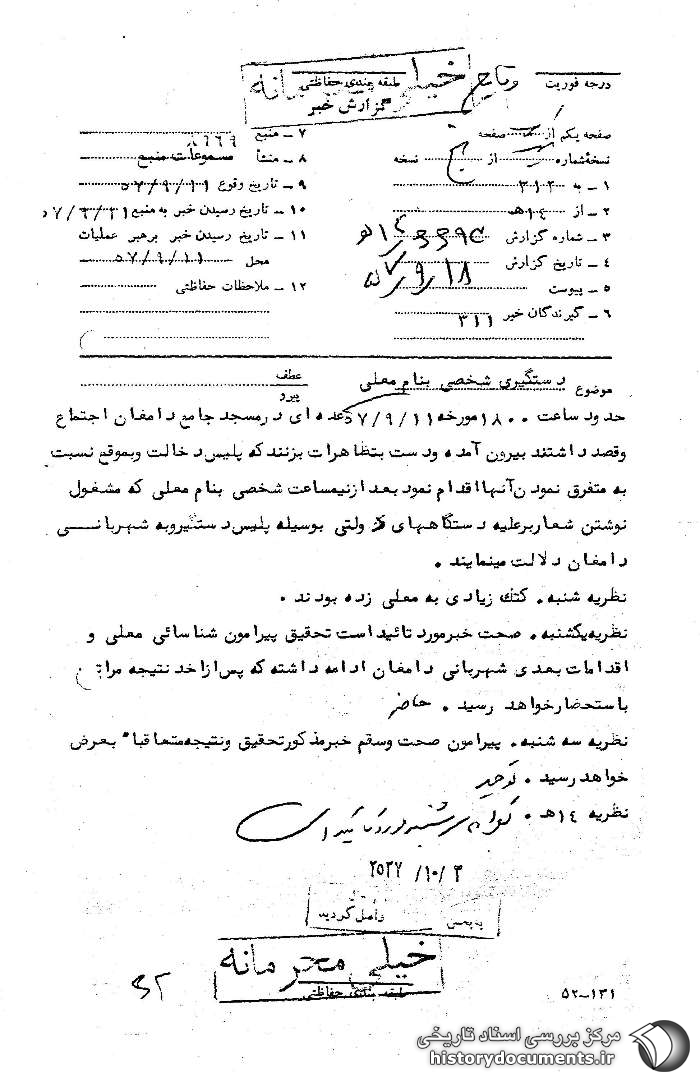 خیلی محرمانه
درجه فوریت
طبقه بندی حفاظتی
گزارش خبر
صفحه یکم از یک صفحه
نسخه شماره از پنج نسخه
۱ ـ به ۳۱۲
۲ ـ از ۱۴هـ
۳ ـ شماره گزارش
۴ ـ تاریخ گزارش ۵۷/۹/۱۸
۵ ـ پیوست
۶ ـ گیرندگان خبر ۳۱۱
۷ ـ منبع ۸۹۶۹
۸ ـ منشأ مسموعات منبع
۹ ـ تاریخ وقوع ۵۷/۹/۱۱
۱۰ ـ تاریخ رسیدن خبر به منبع
۱۱ ـ تاریخ رسیدن خبر برهبر عملیات
محل ۵۷/۹/۱۱
۱۲ ـ ملاحظات حفاظتی
موضوع دستگیری شخصی بنام معلی
عطف
پیرو
حدود ساعت ۱۸۰۰ مورخه ۵۷/۹/۱۱ عده ای در مسجد جامع دامغان اجتماع
وقصد داشتند بیرون آمده ودست بتظاهرات بزنند که پلیس دخالت وبموقع نسبت
به متفرق نمودن آنها اقدام نمود بعد از نیمساعت شخصی بنام معلی که مشغول
نوشتن شعار برعلیه دستگاههای دولتی بوسیله پلیس دستگیر وبه شهربانی
دامغان دلالت مینمایند .
نظریه شنبه . کتک زیادی به معلی زده بودند .
نظریه یکشنبه . صحت خبر مورد تائید است تحقیق پیرامون شناسائی معلی و
اقدامات بعدی شهربانی دامغان ادامه داشته که پس از اخذ نتیجه مراتب
باستحضار خواهد رسید .
نظریه سه شنبه . پیرامون صحت وسقم خبر مذکور تحقیق ونتیجه متعاقباً بعرض
خواهد رسید .
نظریه ۱۴هـ .
۲۵۳۷/۱۰/۳
واصل گردید
خیلی محرمانه
طبقه بندی حفاظتی
۵۲-۱۳۱
مرکز بررسی اسناد تاریخی
historydocuments.ir